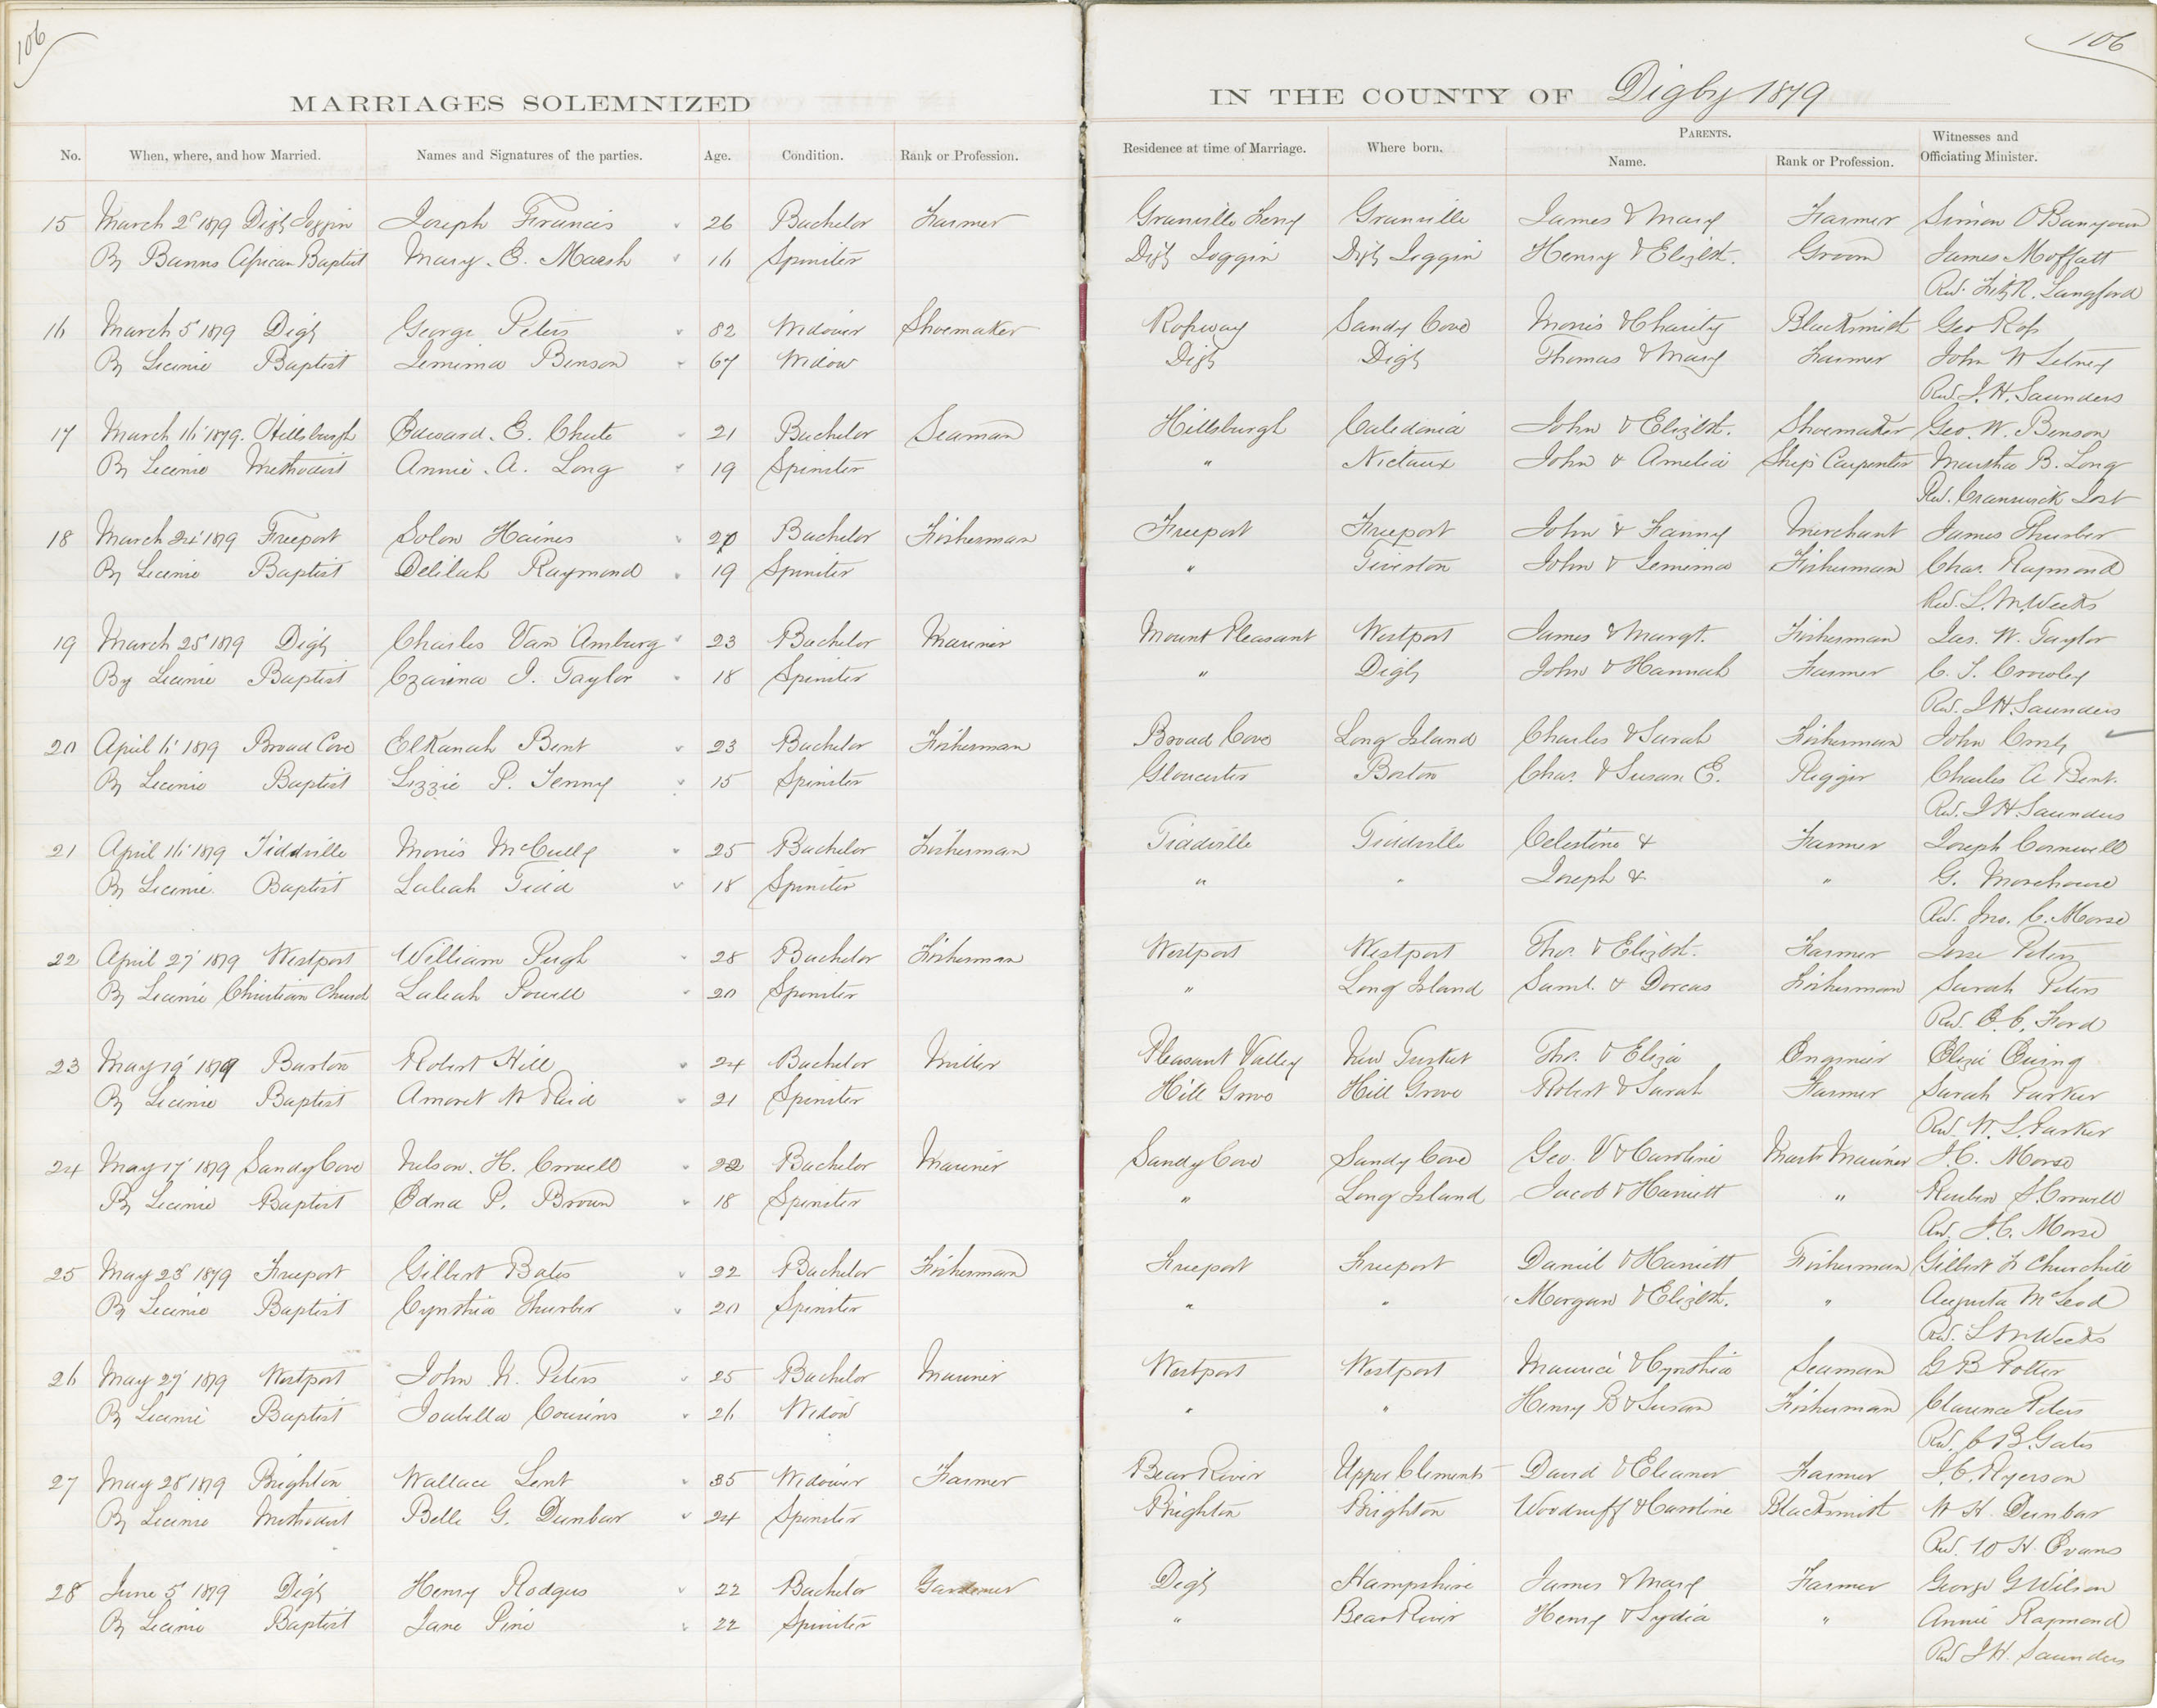 106
106
MARRIAGES SOLEMNIZED IN THE COUNTY OF Digby 1879
No. When, where, and how Married. Names and Signatures of the parties. Age. Condition. Rank or Profession. Residence at time of Marriage. Where born. PARENTS. Name. Rank or Profession. Witnesses and Officiating Minister.
15 March 2 1879 Digby Joggin Joseph Francis 26 Bachelor Farmer Granville Ferry Granville James & Mary Farmer Simon O Banyoun
By Banns African Baptist Mary. E. Marsh 16 Spinster Digby Joggin Digby Joggin Henry & Elizbth. Groom James Moffatt
Rev. Fitz R. Langford
16 March 5 1879 Digby George Peters 82 Widower Shoemaker Ropway Sandy Cove Morris & Charity Blacksmith Geo
By License Baptist Jemima Benson 67 Widow Digby Digby Thomas & Mary Farmer John W
Rev. J. H. Saunders
17 March 16 1879. Hillsburgh Edward. E. Chute 21 Bachelor Seaman Hillsburgh Caledonia John & Elizbth. Shoemaker Geo. W. Benson
By License Methodist Annie. A. Long 19 Spinster " Nictaux John & Amelia Ship Carpenter Martha B. Long
Rev. Cranswick Jost
18 March 24 1879 Freeport Solon Haines 20 Bachelor Fisherman Freeport Freeport John & Fanny Merchant James Thurber
By License Baptist Delilah Raymond 19 Spinster " Tiverton John & Jemima Fisherman Chas. Raymond
Rev. L. M. Weeks
19 March 25 1879 Digby Charles Van Amburg 23 Bachelor Mariner Mount Pleasant Westport James & Margt. Fisherman Jas. W. Taylor
By License Baptist Czarina J. Taylor 18 Spinster " Digby John & Hannah Farmer C. S. Crowley
Rev. J H. Saunders
20 April 6 1879 Broad Cove Elkanah Bent 23 Bachelor Fisherman Broad Cove Long Island Charles & Sarah Fisherman John
By License Baptist Lizzie P. Tenny 15 Spinster Gloucester Boston Chas. & Susan E. Rigger Charles A Bent.
Rev. J H. Saunders
21 April 16 1879 Tiddville Morris McCully 25 Bachelor Fisherman Tiddville Tiddville Celestine & Farmer Joseph Cornwell
By License. Baptist Laleah Tidd 18 Spinster " " Joseph & " G. Morehouse
Rev. Jno. C. Morse
22 April 27 1879 Westport William Pugh 28 Bachelor Fisherman Westport Westport Thos. & Elizbth. Farmer Jesse Peters
By License Christian Church Laleah Powell 20 Spinster " Long Island Saml. & Dorcas Fisherman Sarah Peters
Rev. E. C. Ford
23 May 19 1879 Barton Robert Hill 24 Bachelor Miller Pleasant Valley New Tusket Thos. & Eliza Engineer
By License Baptist Amoret W Reid 21 Spinster Hill Grove Hill Grove Robert & Sarah Farmer Sarah Parker
Rev. W. L. Parker
24 May 17 1879 Sandy Cove Nelson. H. Crowell 22 Bachelor Mariner Sandy Cove Sandy Cove Geo. V & Caroline Mastr Mariner J. C. Morse
By License Baptist Edna P. Brown 18 Spinster " Long Island Jacob & Harriett " Reuben S. Crowell
Rev. J. C. Morse
25 May 23 1879 Freeport Gilbert Bates 22 Bachelor Fisherman Freeport Freeport Daniel & Harriett Fisherman Gilbert F Churchill
By License Baptist Cynthia Thurber 20 Spinster " " Morgan & Elizbth. " Augusta McLeod
Rev. L M Weeks
26 May 27 1879 Westport John K. Peters 25 Bachelor Mariner Westport Westport Maurice & Cynthia Seaman B Potter
By License Baptist Isabella Cousins 26 Widow " " Henry B & Susan Fisherman Clarence Peters
Rev. C B. Gates
27 May 28 1879 Brighton Wallace Lent 35 Widower Farmer Bear River Upper Clements David & Eleanor Farmer J. C. Ryerson
By License Methodist Belle G. Dunbar 24 Spinster Brighton Brighton Woodruff & Caroline Blacksmith W H. Dunbar
Rev. W H. Evans
28 June 5 1879 Digby Henry Rodgers 22 Bachelor Gardener Digby Hampshire James & Mary Farmer George G Wilson
By License Baptist Jane Pine 22 Spinster " Bear River Henry & Lydia " Annie Raymond
Rev J H. Saunders